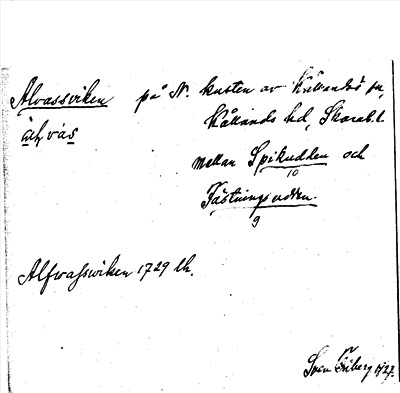 Alvassviken på N. kusten av Kållandsö sn,
älvas Kållands hd, Skarab.l.
mellan Spikudden och
10
Fästningsudden.
9
Alfwasswiken 1729 lk.
Sven Friberg 1927.